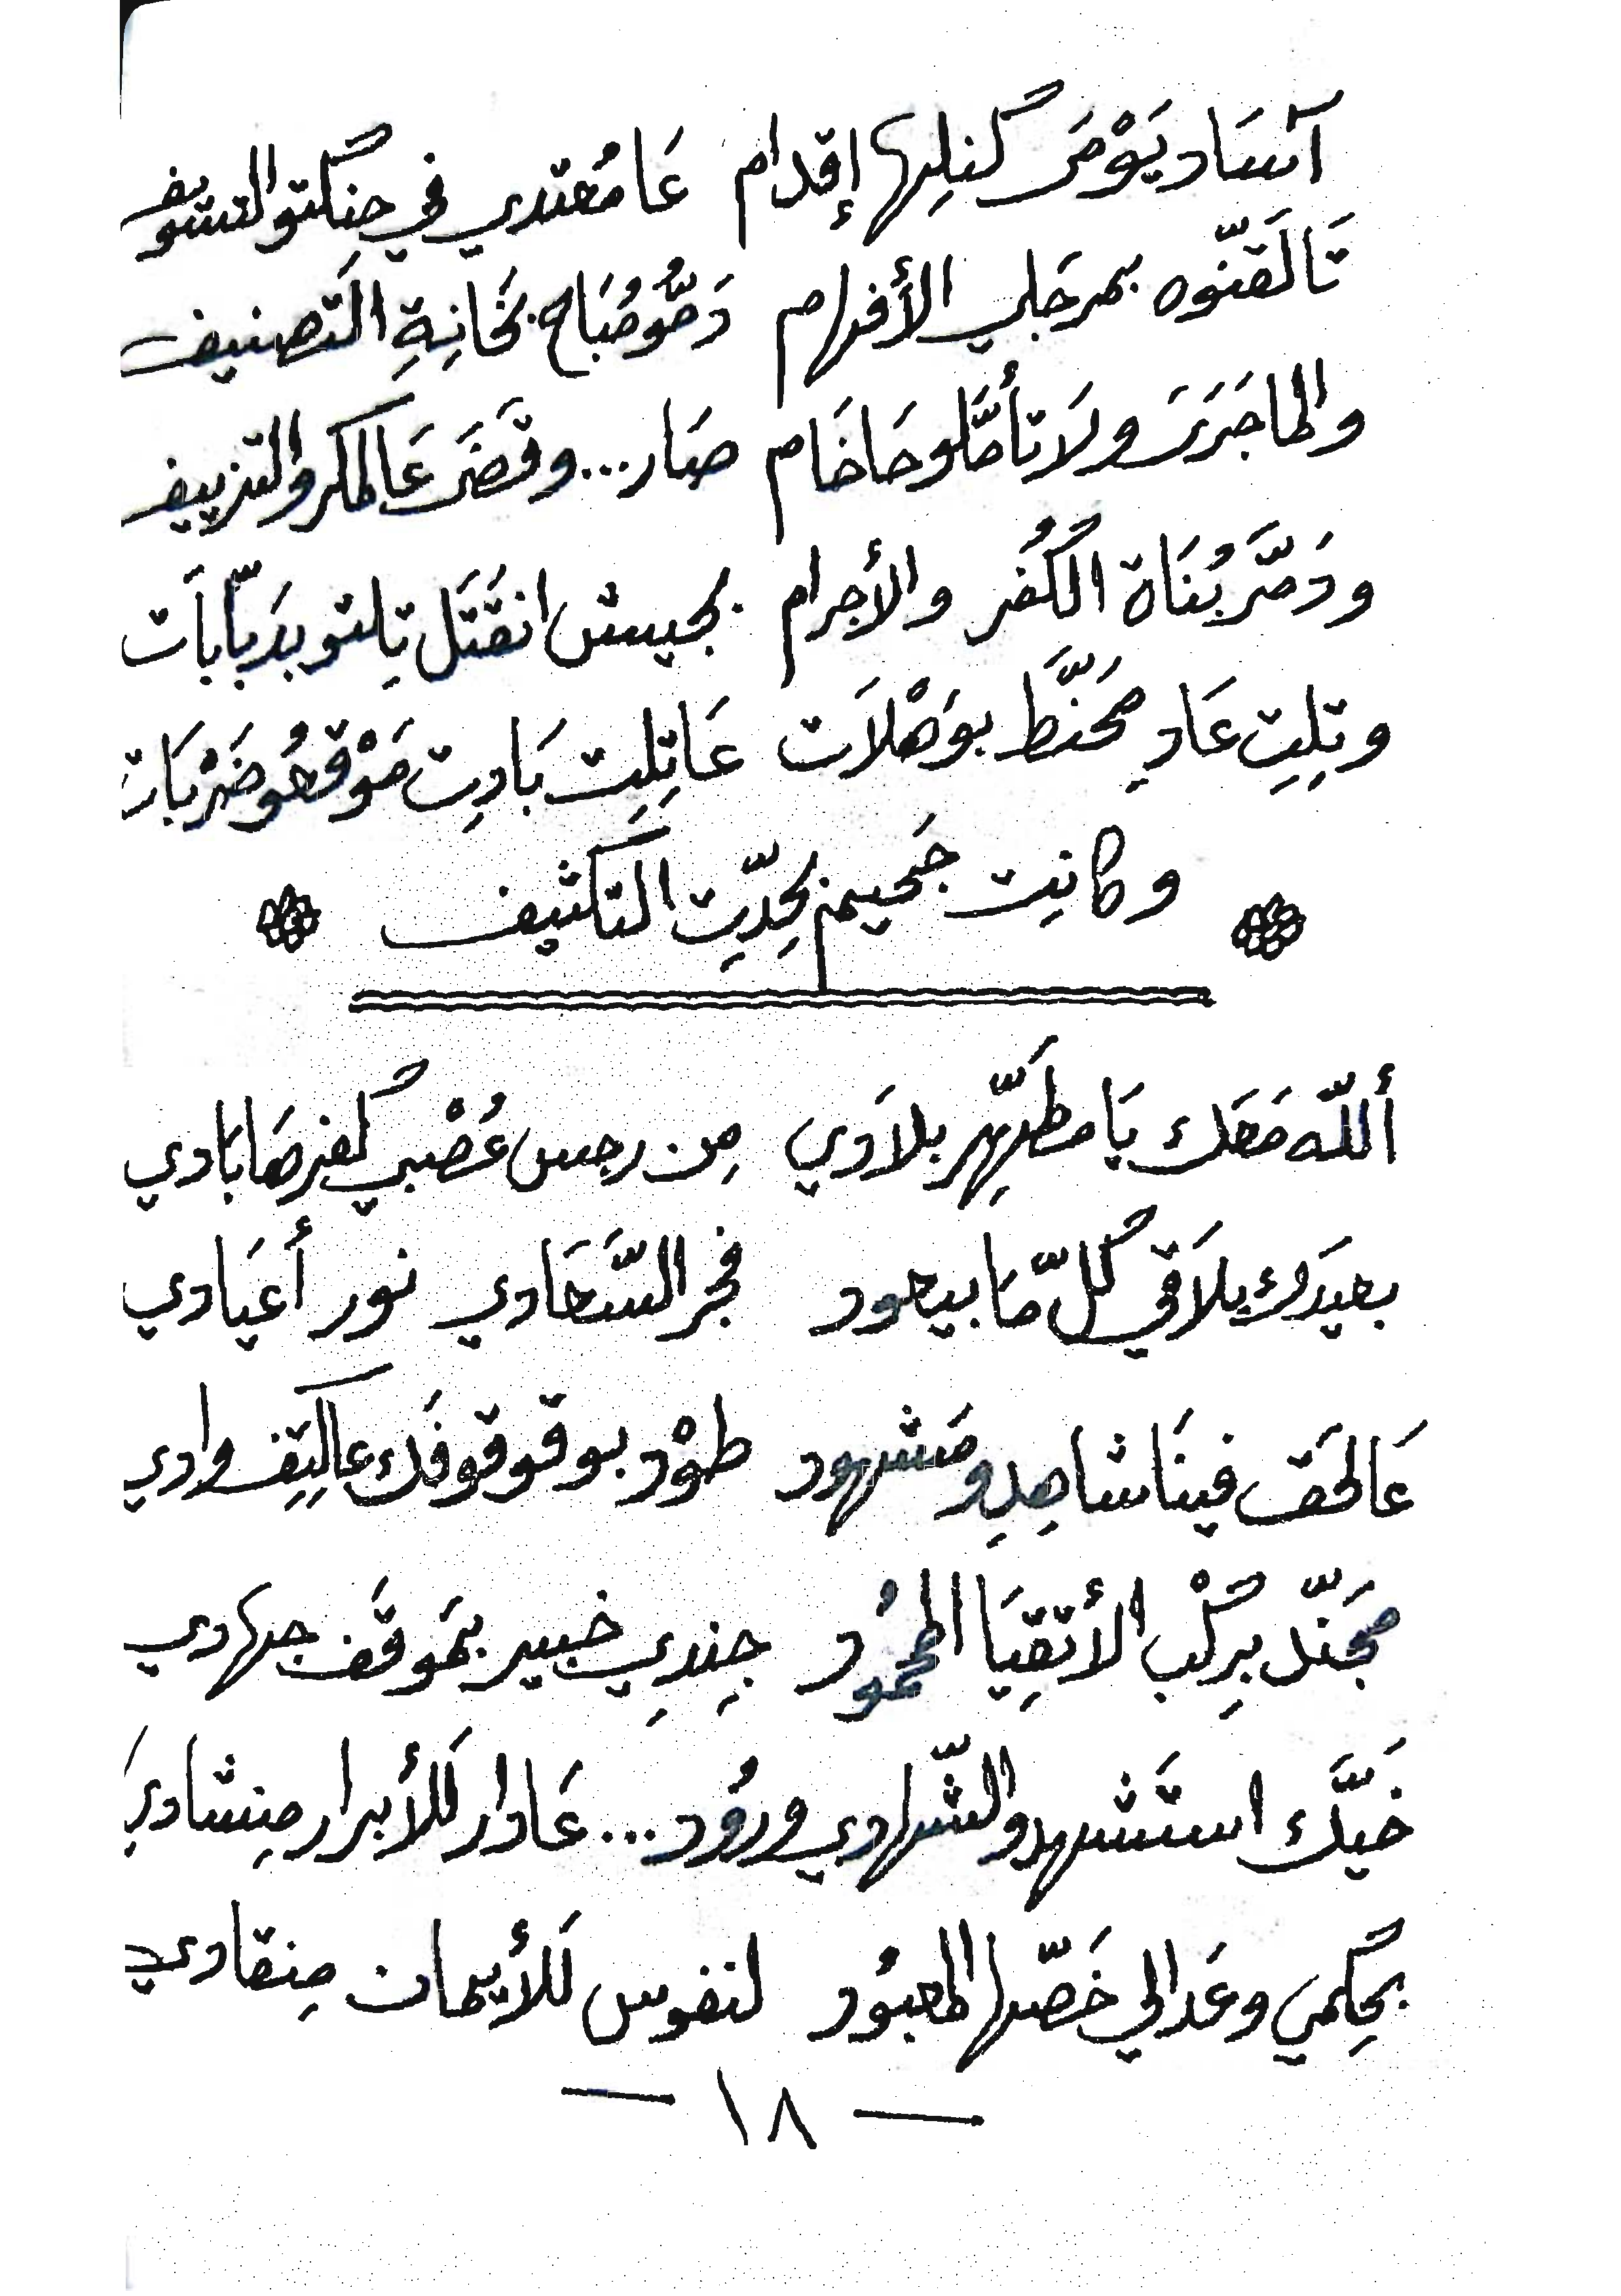 آسَاد يَوْمَى كُنلها إقدام عَا مُعتدي في حِنكتو التسويف
تَا لَقنّوه بمرجَلي الأفهام دَمّو مُبَاح بخَانِةِ التَصنيف
والما جَرَى ولَا تأمّلو حَاخَام صَار...وقَضَى عَالمكر والتزييف
ودَمّر بُنَاة الكُفر والأجرام بجيش انقَتَل تِلتو بدَبّابَات
وتِلِت عَادِ محَنَّط بوَهْلَات عَا تِلِت بَادِت مَوْقعُو ضَرْبَات
وكانِت جَحيم بحِدِّتِ التكثيف
أللّه مَعَك يَا مطَهِّر بلادَي مِن رجس عُصْبي كُفرها بَادي
بعيدَك يلَاقي كُلّ مَا بيعود فجر السَّعَادي نور أعيَادي
عَالحَق فينَا شاهِدِ ومَشهود طَوْد بوقوقوفَك عاكتِف وادي
مجَنّد برِكْب الأتقِيَا المحمُود جِندِي خبير بمَوقَف جهادي
خَيَّك استَشهد والشّهادي ورُود...عَا دار للأبرار مِنشادي
بحِكمي وعَدالي خَصّها المعبُود لنفوس للأيمان مِنقادي
— ١٨ —